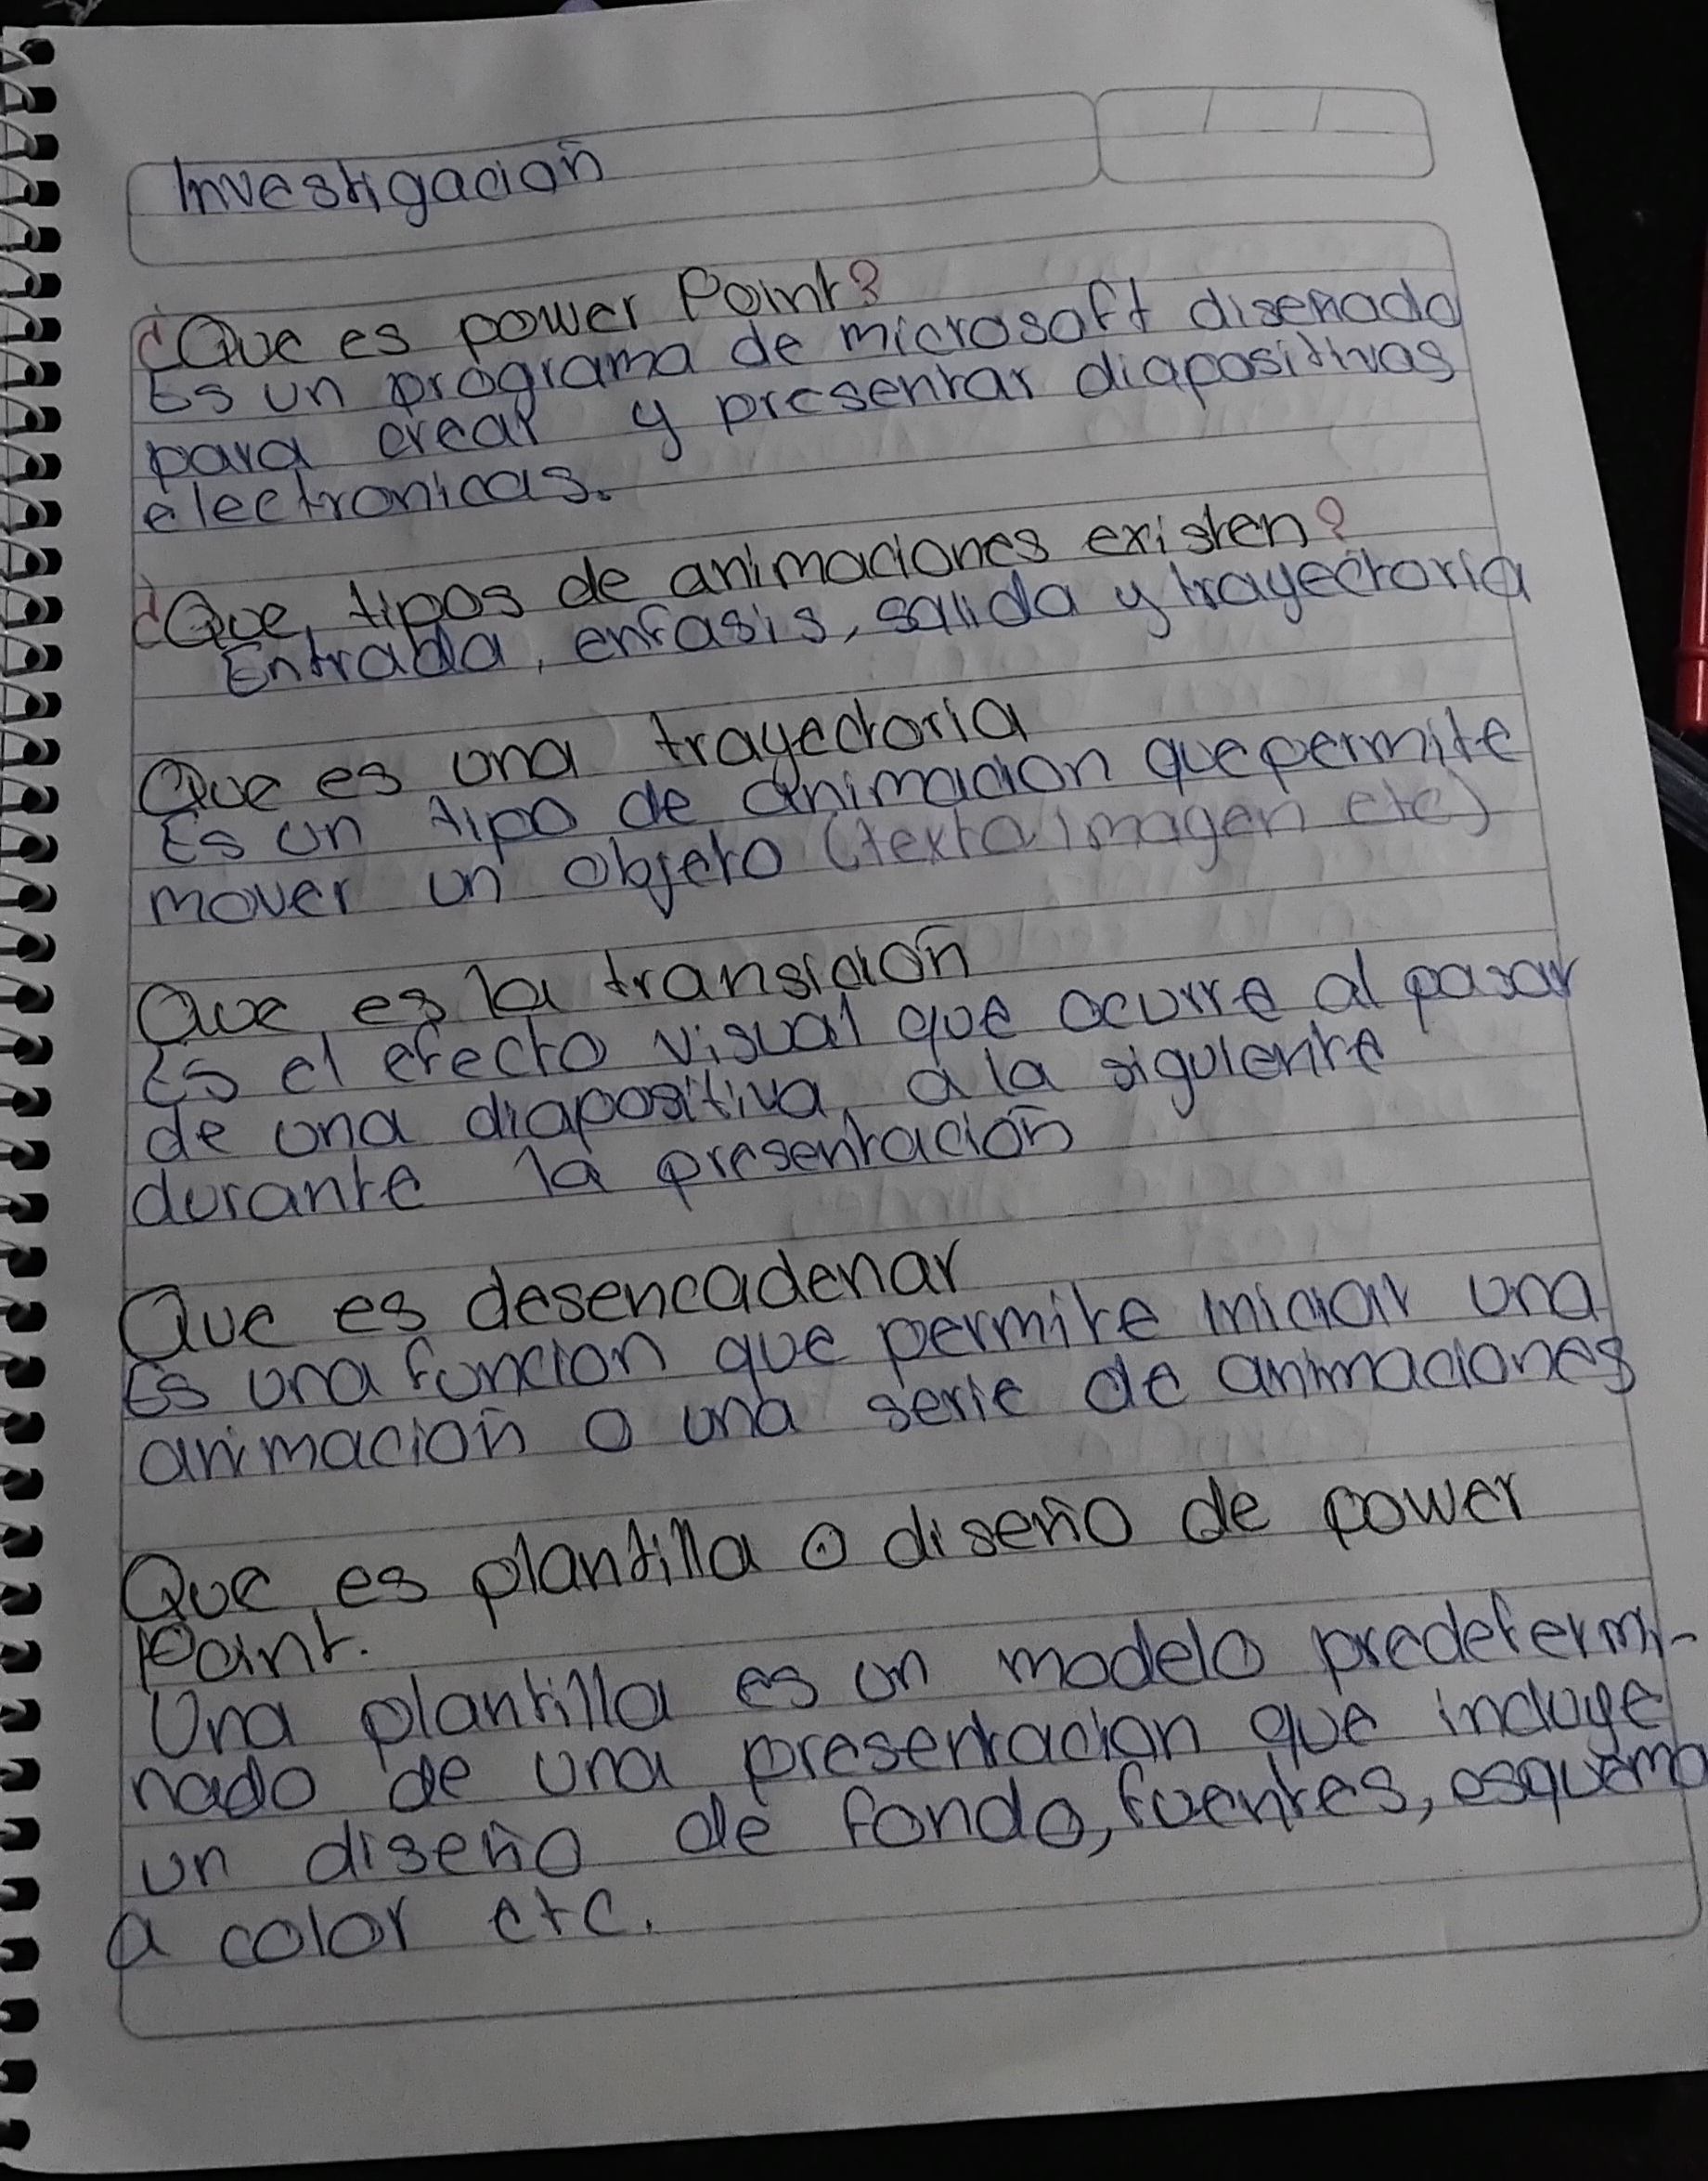 Investigación
¿Que es power Point?
Es un programa de microsoft diseñado
para crear y presentar diapositivas
electronicas.
¿Que tipos de animaciones existen?
Entrada, enfasis, salida y trayectoria
Que es una trayectoria
Es un tipo de animacion que permite
mover un objeto (texto imagen etc)
Que es la transición
Es el efecto visual que ocurre al pasar
de una diapositiva a la siguiente
durante la presentación
Que es desencadenar
Es una funcion que permite iniciar una
animación o una serie de animaciones
Que es plantilla o diseño de power
Point.
Una plantilla es un modelo predetermi-
nado de una presentacion que incluye
un diseño de fondo, fuentes, esquema
a color etc.